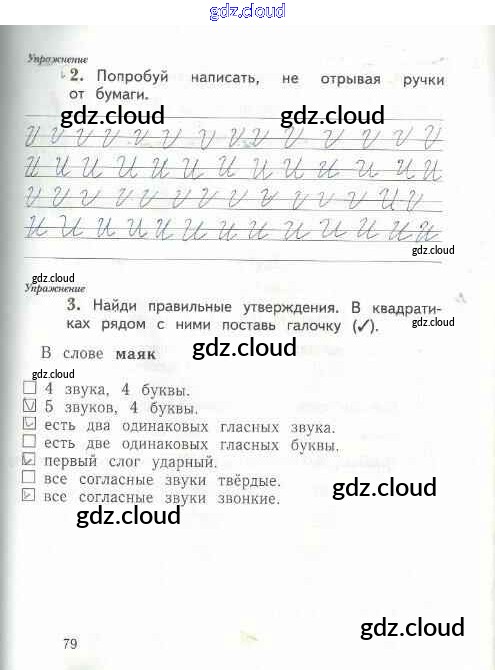 gdz.cloud
Упражнение
2. Попробуй написать, не отрывая ручки
от бумаги.
gdz.cloud gdz.cloud
и и и и и и и и и и и и и и и
и и и и и и и и и и и и и
и и и и и и и и и и и и и
и и и и и и и и и и и и и
gdz.cloud
gdz.cloud
Упражнение
3. Найди правильные утверждения. В квадрати-
gdz.cloud
ках рядом с ними поставь галочку (✓).
gdz.cloud
В слове маяк
gdz.cloud
gdz.cloud
☐ 4 звука, 4 буквы.
☑ 5 звуков, 4 буквы.
☑ есть два одинаковых гласных звука.
☐ есть две одинаковых гласных буквы.
☑ первый слог ударный.
☐ все согласные звуки твёрдые.
☑ все согласные звуки звонкие.
gdz.cloud
gdz.cloud
79
gdz.cloud